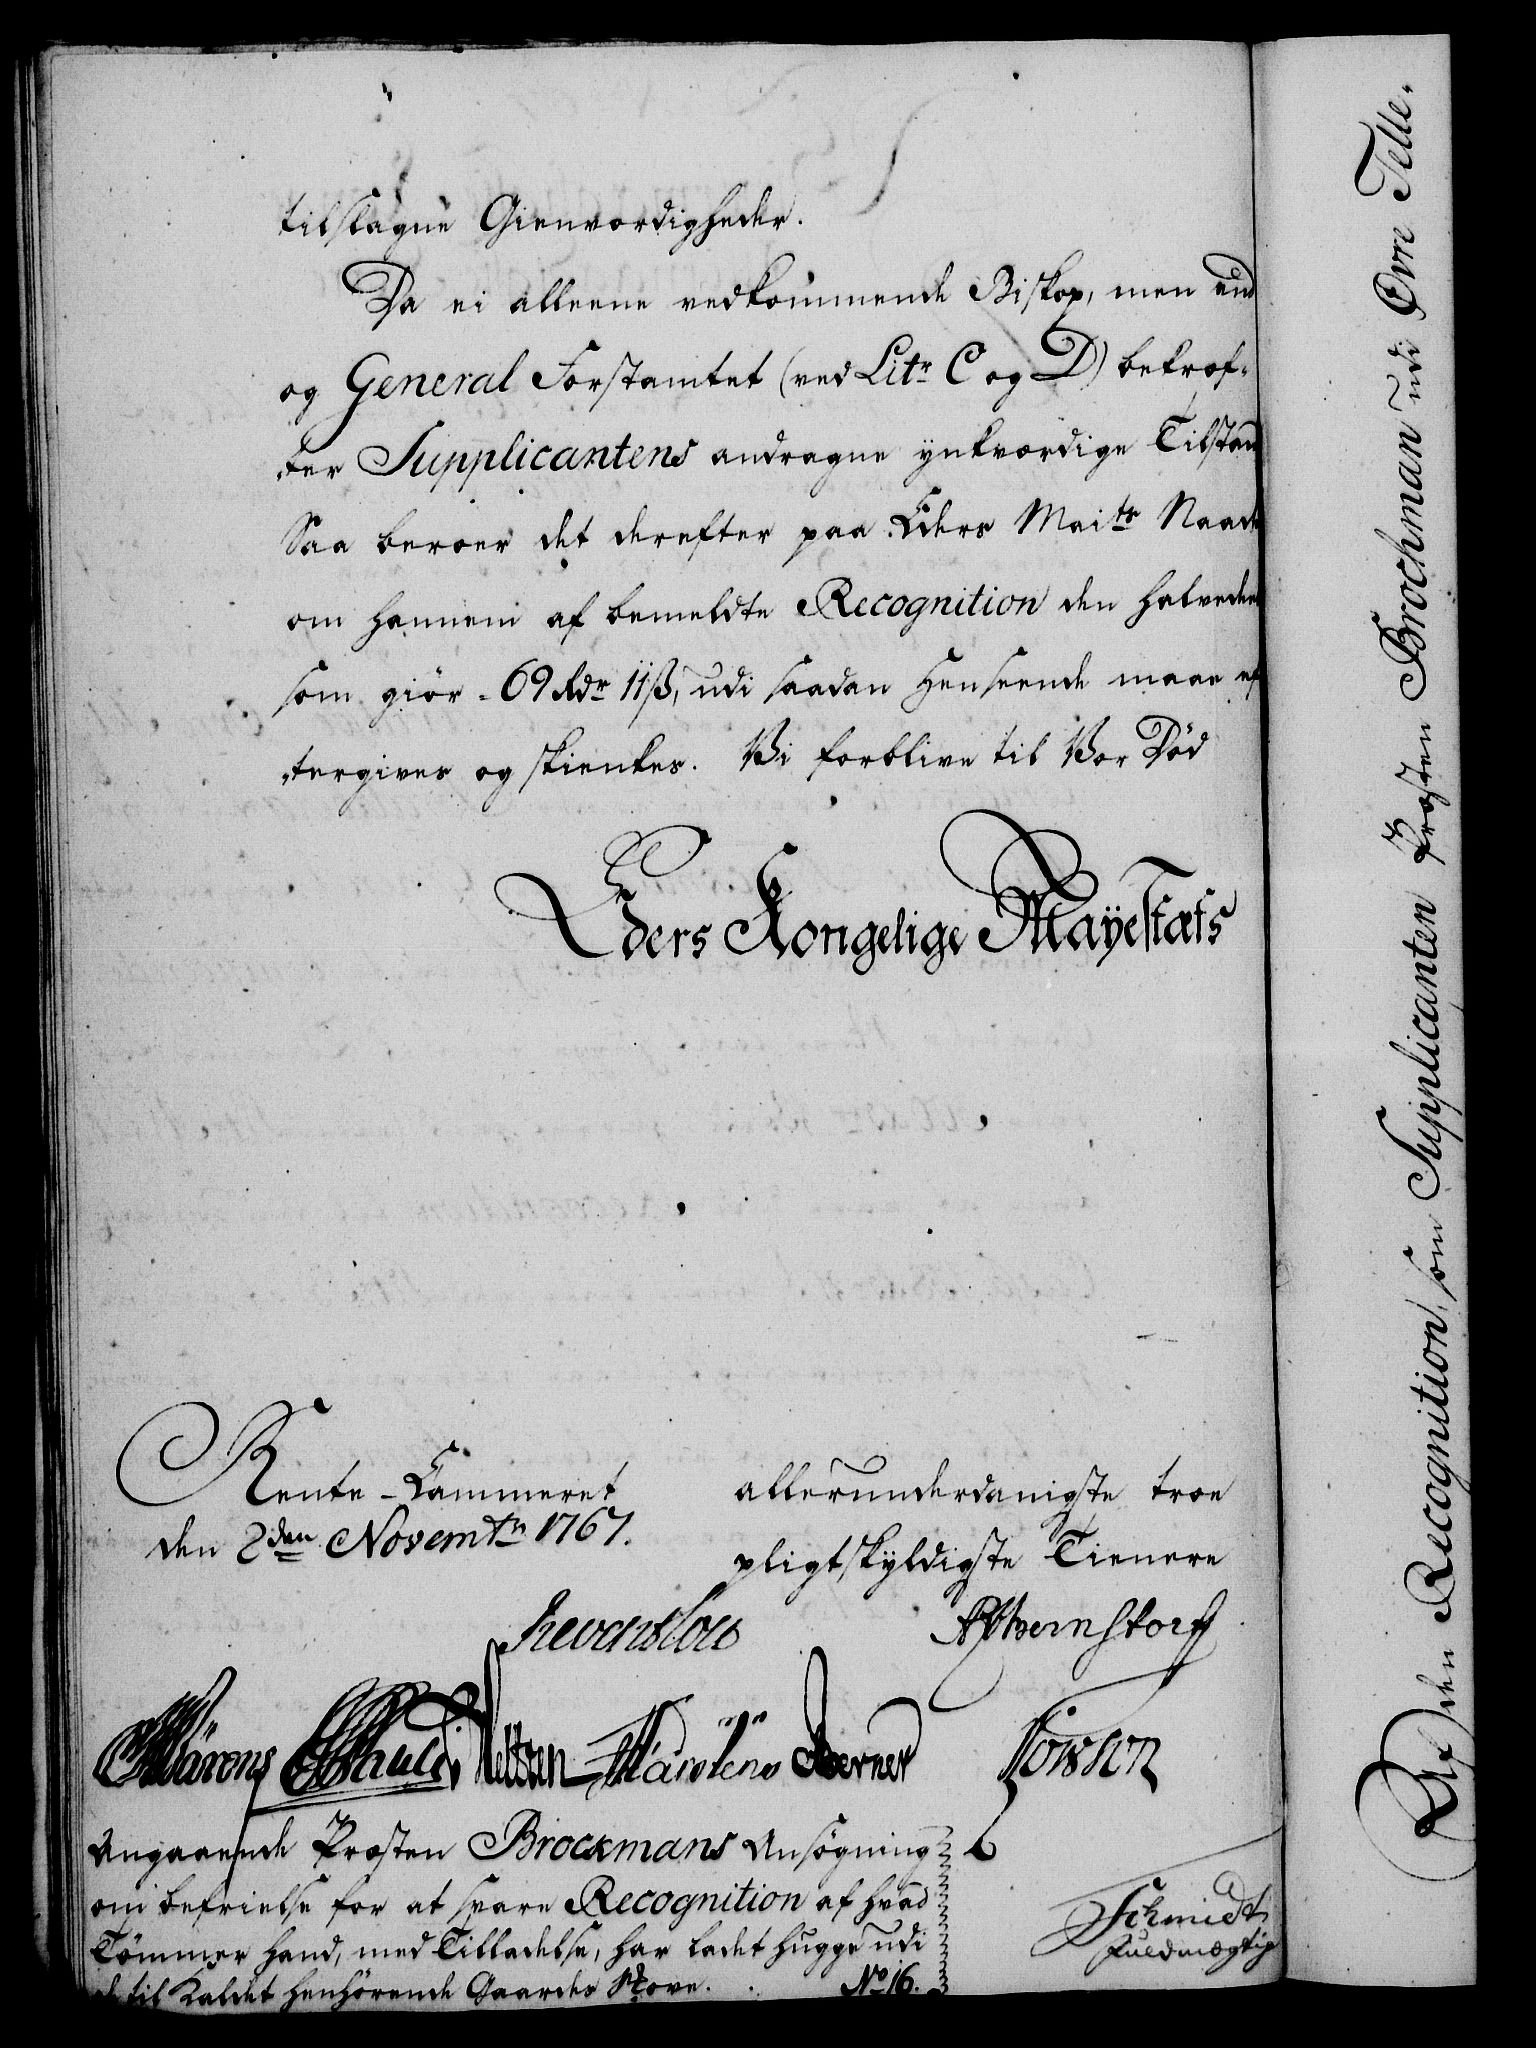 tilslagne Gienvordigheder.
Da ei alleene vedkommende Biskop, men end
og General Forstamtet (ved Litr C og D) bekræf-
ter Supplicantens andragne ynkværdige Tilstan
Saa beroer det derefter paa Eders Maits Naade
om hannem af bemeldte Recognition den halvedeel
som giør - 69 Rdr 11 ß, udi saadan Henseende maae ef
tergives og skienkes. Vi forblive til Vor Død
Eders Kongelige Mayestæts
Rente-Cammeret
den 2den Novembr 1767.
allerunderdanigste troe
pligtskyldigste Tienere
Reventlow
Bhernstorff
Wärens Schult Neltsen Martens Berner
Jonsson
Angaaende Præsten Brockmans Ansøgning
om befrielse for at svare Recognition af hvad
Tømmer hand, med Tilladelse, har ladet hugge udi
de til Kaldet henhørende Gaardes Skove. No 16.
Schmidt
Fuldmægtig
Af den Recognition, som Supplicanten Præsten Brochman udi Øvre Telle-